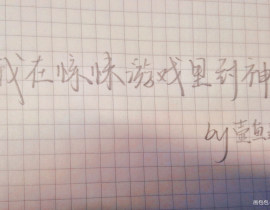 我在惊悚游戏里封神
by壶鱼